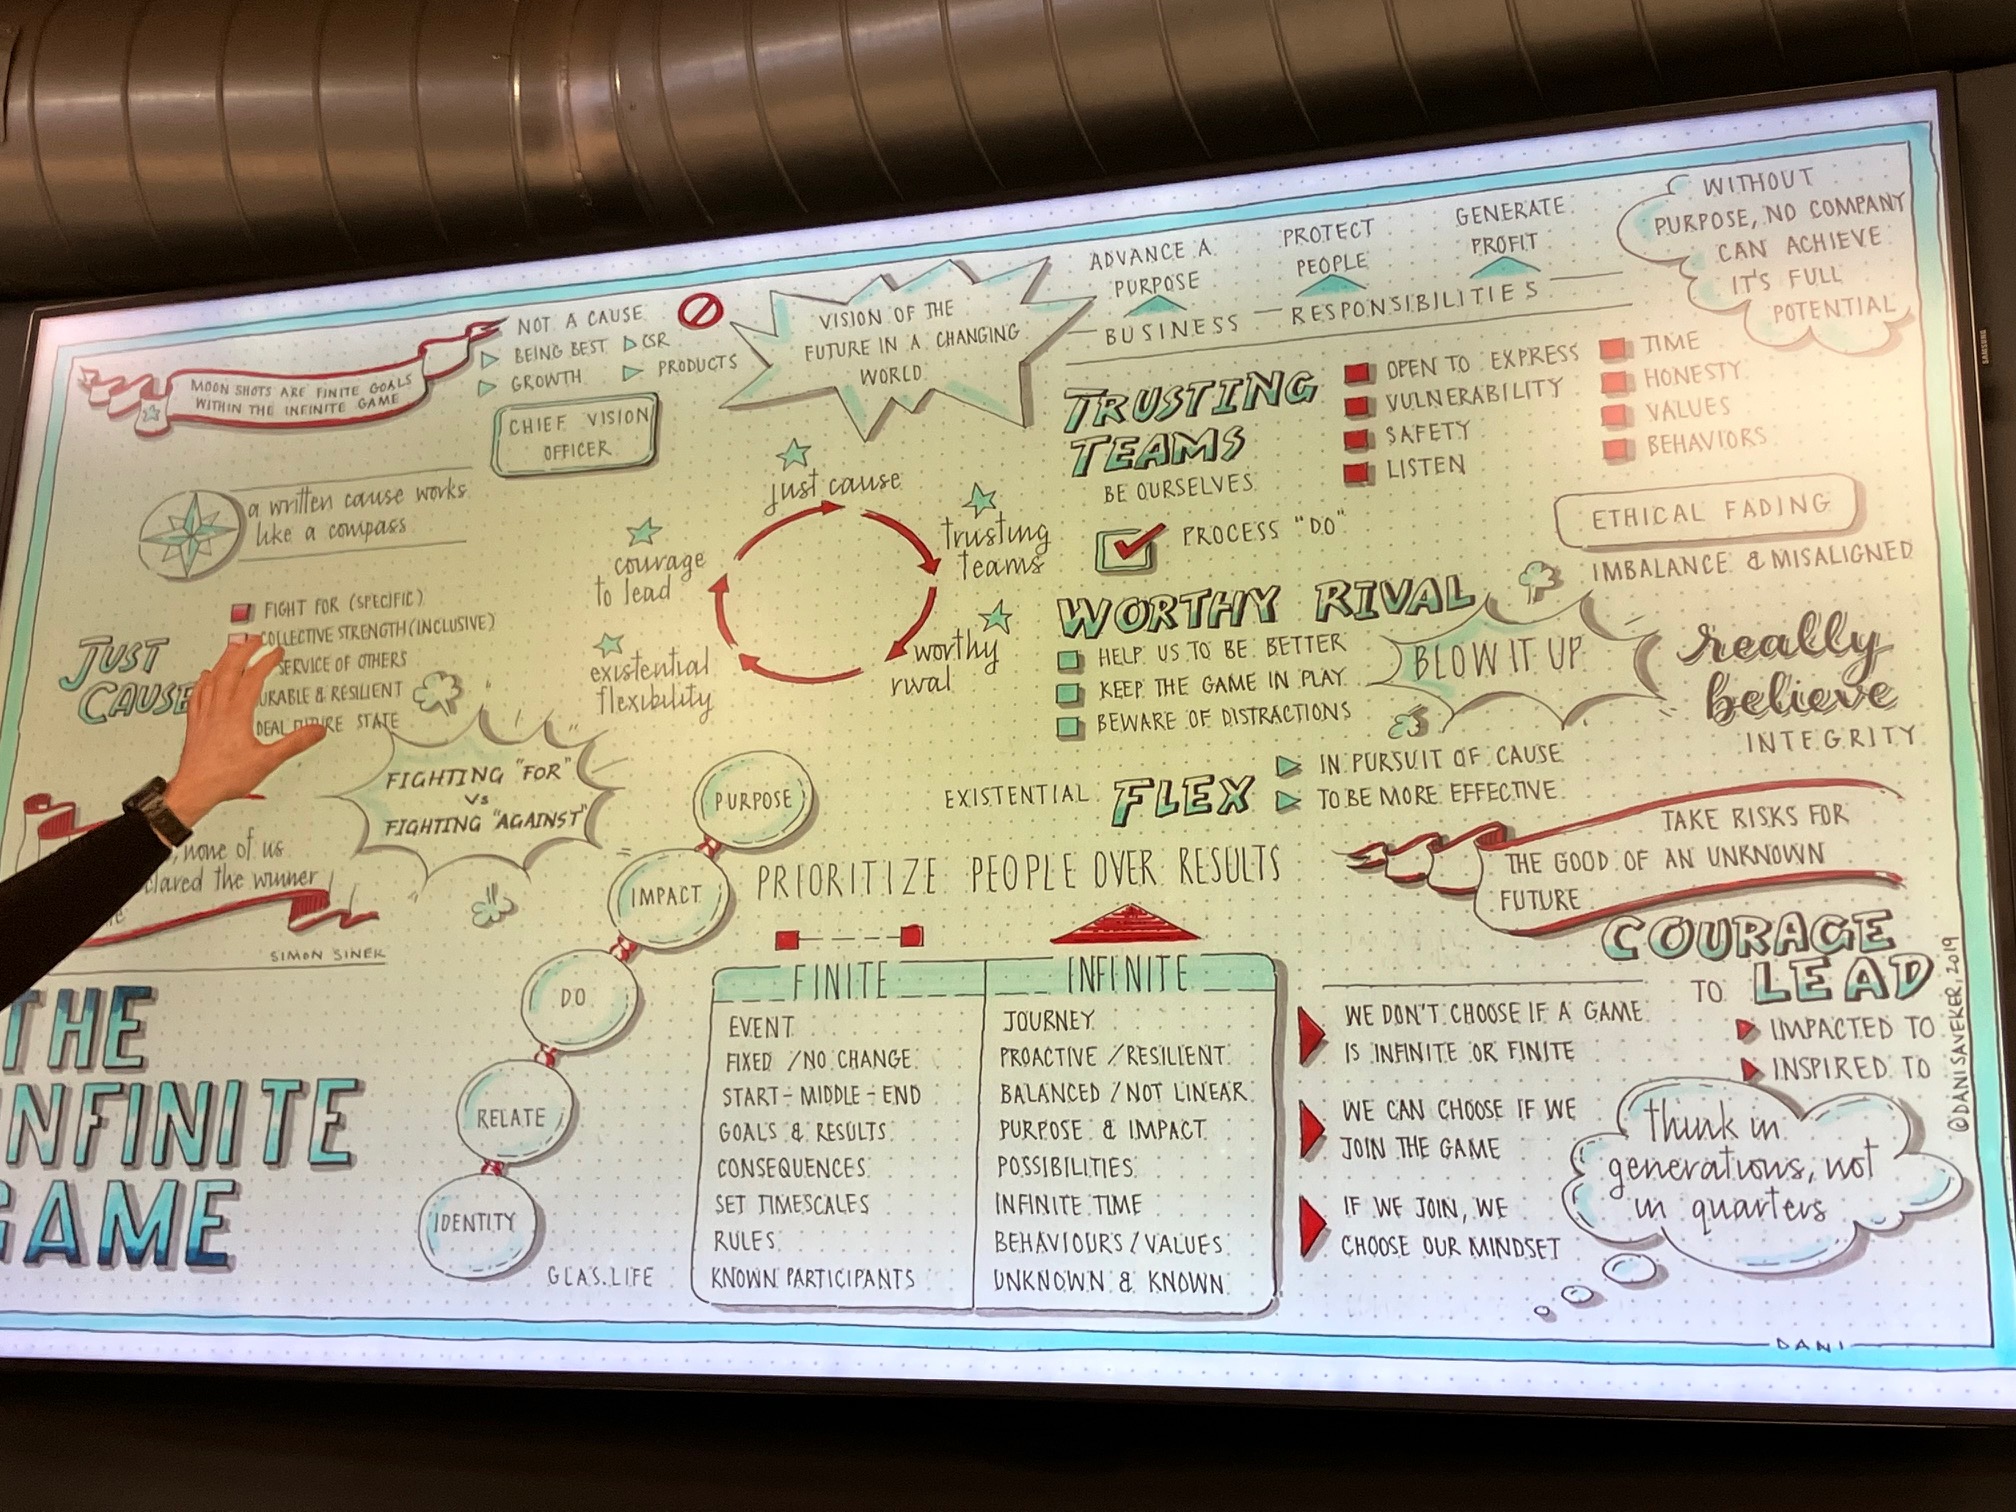 MOON SHOTS ARE FINITE GOALS
WITHIN THE INFINITE GAME
NOT A CAUSE
BEING BEST
CSR
GROWTH
PRODUCTS
CHIEF VISION
OFFICER
VISION OF THE
FUTURE IN A CHANGING
WORLD
ADVANCE A
PURPOSE
PROTECT
PEOPLE
GENERATE
PROFIT
BUSINESS RESPONSIBILITIES
WITHOUT
PURPOSE, NO COMPANY
CAN ACHIEVE
IT'S FULL
POTENTIAL
a written cause works
like a compass
JUST
CAUSE
FIGHT FOR (SPECIFIC)
COLLECTIVE STRENGTH (INCLUSIVE)
SERVICE OF OTHERS
& RESILIENT
STATE
FIGHTING "FOR"
VS
FIGHTING "AGAINST"
, none of us
the winner
SIMON SINEK
THE
INFINITE
GAME
just cause
trusting
teams
worthy
rival
existential
flexibility
courage
to lead
TRUSTING
TEAMS
BE OURSELVES
OPEN TO EXPRESS
VULNERABILITY
SAFETY
LISTEN
TIME
HONESTY
VALUES
BEHAVIORS
PROCESS "DO"
ETHICAL FADING
IMBALANCE & MISALIGNED
WORTHY RIVAL
HELP US TO BE BETTER
KEEP THE GAME IN PLAY
BEWARE OF DISTRACTIONS
BLOW IT UP
really
believe
INTEGRITY
EXISTENTIAL FLEX
IN PURSUIT OF CAUSE
TO BE MORE EFFECTIVE
PURPOSE
IMPACT
DO
RELATE
IDENTITY
GLAS.LIFE
PRIORITIZE PEOPLE OVER RESULTS
TAKE RISKS FOR
THE GOOD OF AN UNKNOWN
FUTURE
COURAGE
TO LEAD
IMPACTED TO
INSPIRED TO
FINITE INFINITE
EVENT JOURNEY
FIXED / NO CHANGE PROACTIVE / RESILIENT
START - MIDDLE - END BALANCED / NOT LINEAR
GOALS & RESULTS PURPOSE & IMPACT
CONSEQUENCES POSSIBILITIES
SET TIMESCALES INFINITE TIME
RULES BEHAVIOURS / VALUES
KNOWN PARTICIPANTS UNKNOWN & KNOWN
WE DON'T CHOOSE IF A GAME
IS INFINITE OR FINITE
WE CAN CHOOSE IF WE
JOIN THE GAME
IF WE JOIN, WE
CHOOSE OUR MINDSET
think in
generations, not
in quarters
©DANISAVEKER, 2019
DANI
SAMSUNG